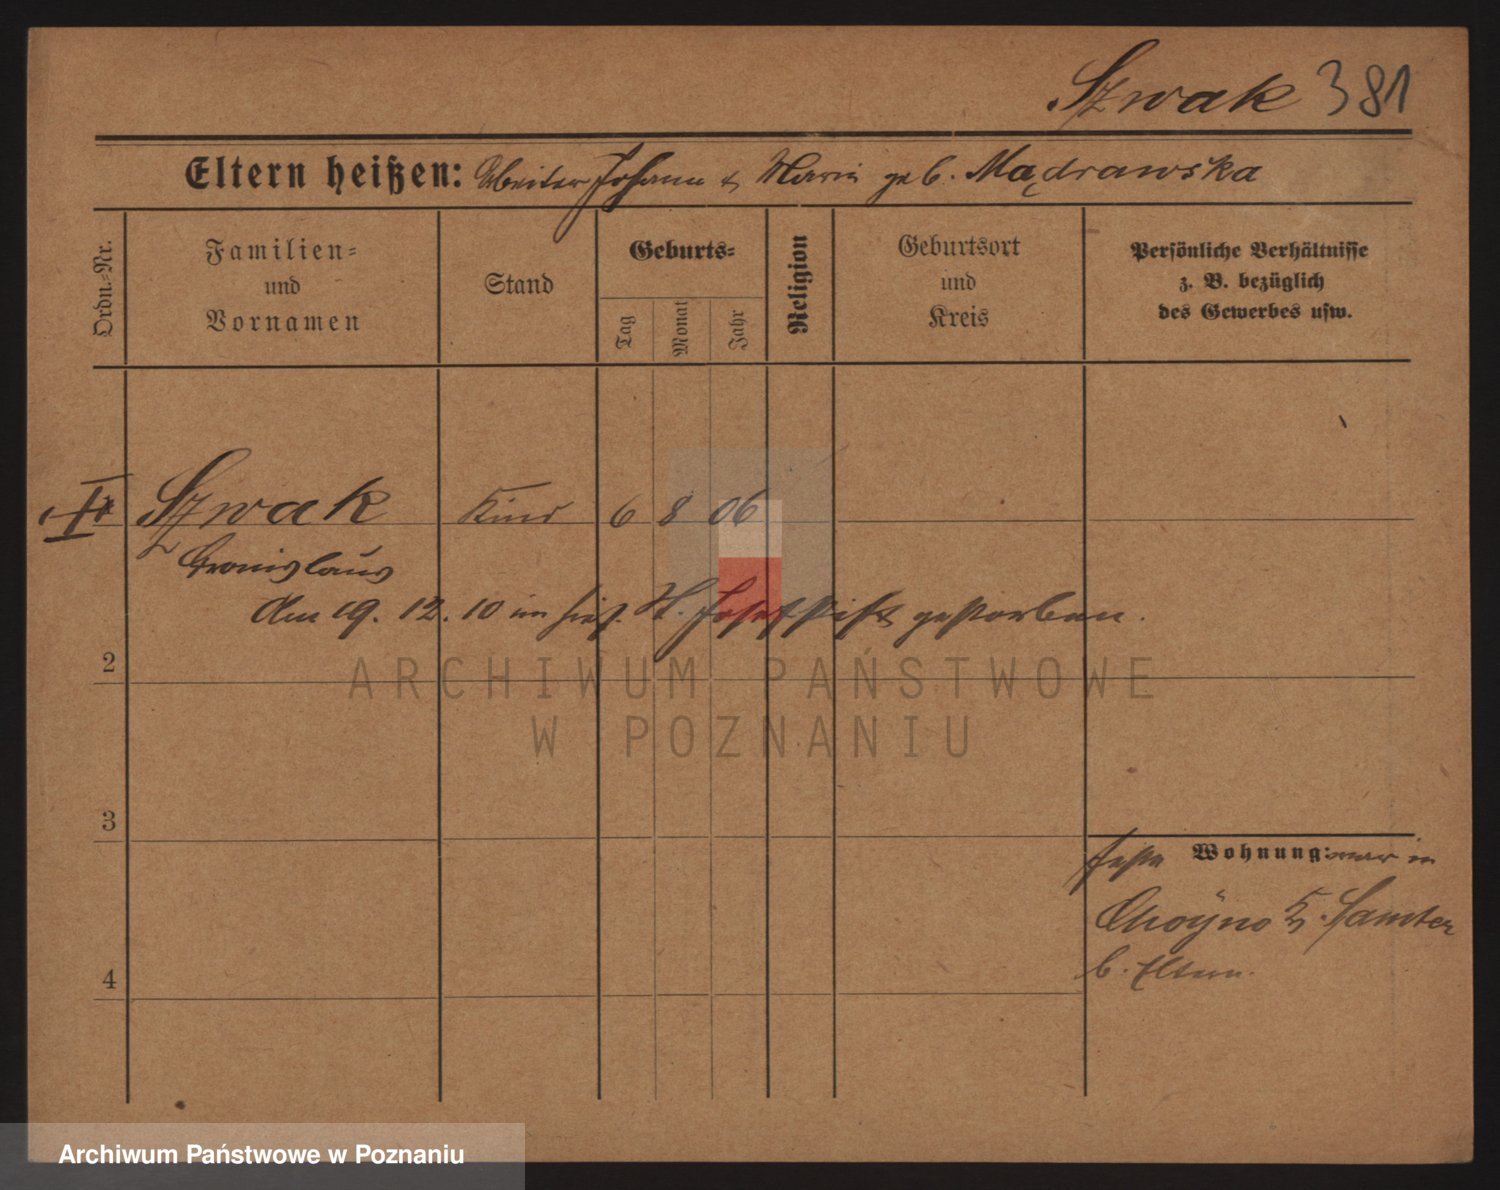 Szwak 381
Eltern heißen: Arbeiter Johann & Maria geb. Mądrawska
Ordn.-Nr.
Familien-
und
Vornamen
Stand
Geburts-
Tag
Monat
Jahr
Religion
Geburtsort
und
Kreis
Persönliche Verhältnisse
z. B. bezüglich
des Gewerbes usw.
Szwak Kind 6 8 06
Bronislaus
Am 19. 12. 10 im hies. St. Josefstift gestorben.
2
ARCHIWUM PAŃSTWOWE
W POZNANIU
3
feste Wohnung: war in
Choyno Kr. Samter
4
b. Eltern.
Archiwum Państwowe w Poznaniu